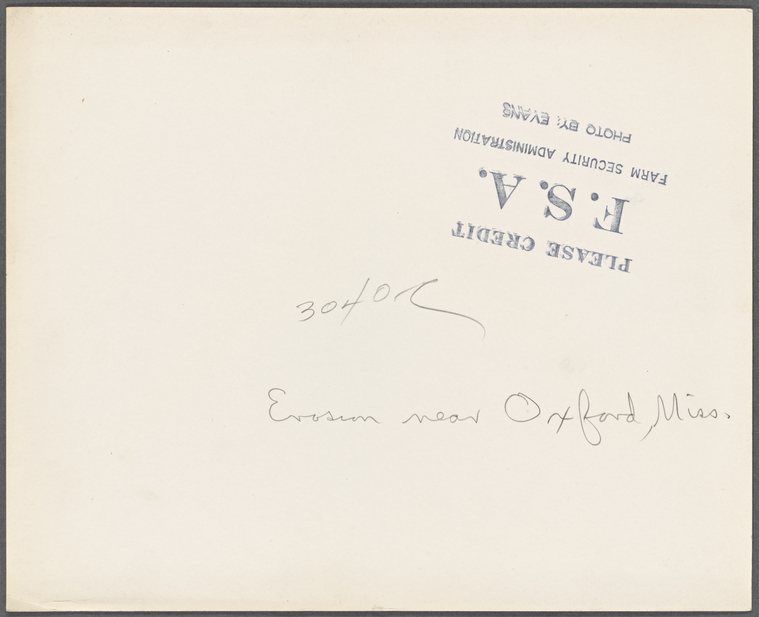 PLEASE CREDIT
F.S.A.
FARM SECURITY ADMINISTRATION
PHOTO BY: EVANS
3040
Erosion near Oxford, Miss.